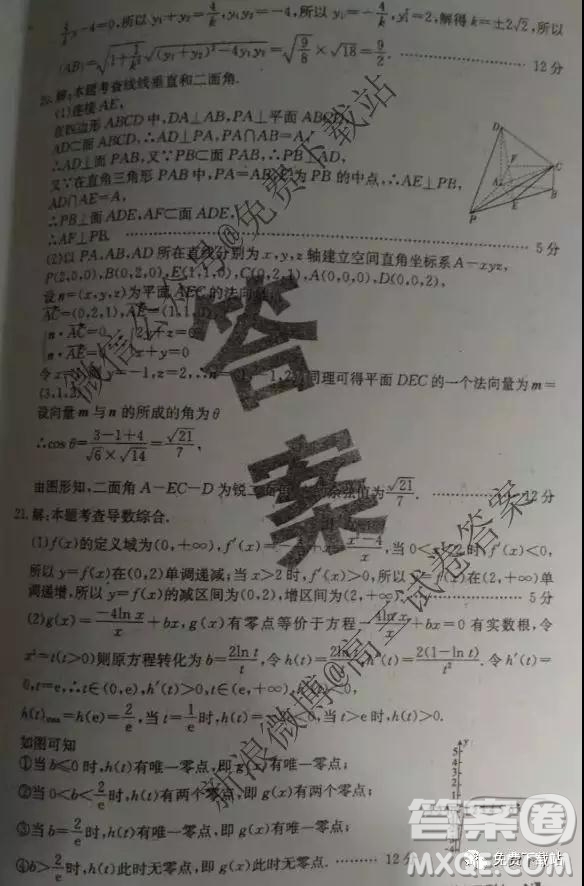 4/k y-4=0,所以 y₁+y₂=4/k,y₁y₂=-4,所以 y₁=-4/k,y₁²=2,解得 k=±2√2,所以
|AB|=√(1+1/k²)√((y₁+y₂)²-4y₁y₂)=√(9/8)×√18=9/2. 12 分
20.解:本题考查线线垂直和二面角.
(1)连接 AE,
在四边形 ABCD 中,DA⊥AB,PA⊥平面 ABCD,
AD⊂面 ABCD,∴AD⊥PA,PA∩AB=A,
∴AD⊥面 PAB,又∵PB⊂面 PAB,∴PB⊥AD,
又∵在直角三角形 PAB 中,PA=AB,E为 PB 的中点,∴AE⊥PB,
AD∩AE=A,
∴PB⊥面 ADE,AF⊂面 ADE,
∴AF⊥PB. 5 分
(2)以 PA,AB,AD 所在直线分别为 x,y,z 轴建立空间直角坐标系 A-xyz,
P(2,0,0),B(0,2,0),E(1,1,0),C(0,2,1),A(0,0,0),D(0,0,2),
设 n=(x,y,z)为平面 AEC 的法向量,
AC=(0,2,1),AE=(1,1,0),
n·AC=0 2y+z=0
n·AE=0 x+y=0
令 x= =-1,z=2,∴n= -1,2),同理可得平面 DEC 的一个法向量为 m=
(3,1,2)
设向量 m 与 n 的所成的角为 θ
∴cos θ=(3-1+4)/(√6×√14)=√21/7,
由图形知,二面角 A-EC-D 为锐二 值为 √21/7. 12 分
21.解:本题考查导数综合.
(1)f(x)的定义域为(0,+∞),f′(x)= x²-4/x,当 0<x<2 时,f′(x)<0,
所以 y=f(x)在(0,2)单调递减;当 x>2 时,f′(x)>0,所以 y=f(x)在(2,+∞)单
调递增,所以 y=f(x)的减区间为(0,2),增区间为(2,+∞). 5 分
(2)g(x)=-4ln x/x+bx,g(x)有零点等价于方程-4ln x/x+bx=0 有实数根,令
x²=t(t>0)则原方程转化为 b=2ln t/t,令 h(t)=2ln t/t,h′(t)=2(1-ln t)/t².令 h′(t)=
0,t=e,∴t∈(0,e),h′(t)>0,t∈(e,+∞), <0,
h(t)max=h(e)=2/e,当 t=1/e 时,h(t)= <0,当 t>e 时,h(t)>0.
如图可知
①当 b≤0 时,h(t)有唯一零点,即 g(x)有唯一零点;
②当 0<b<2/e 时,h(t)有两个零点,即 g(x)有两个零点;
③当 b=2/e 时,h(t)有唯一零点,即 g(x)有唯一零点;
④b>2/e 时,h(t)此时无零点,即 g(x)此时无零点. 12 分
D
F
C
A
B
E
P
y
5
4
3
2
1
答案
微信公众号@免费下载站
新浪微博@高三试卷答案
答案圈
免费下载站